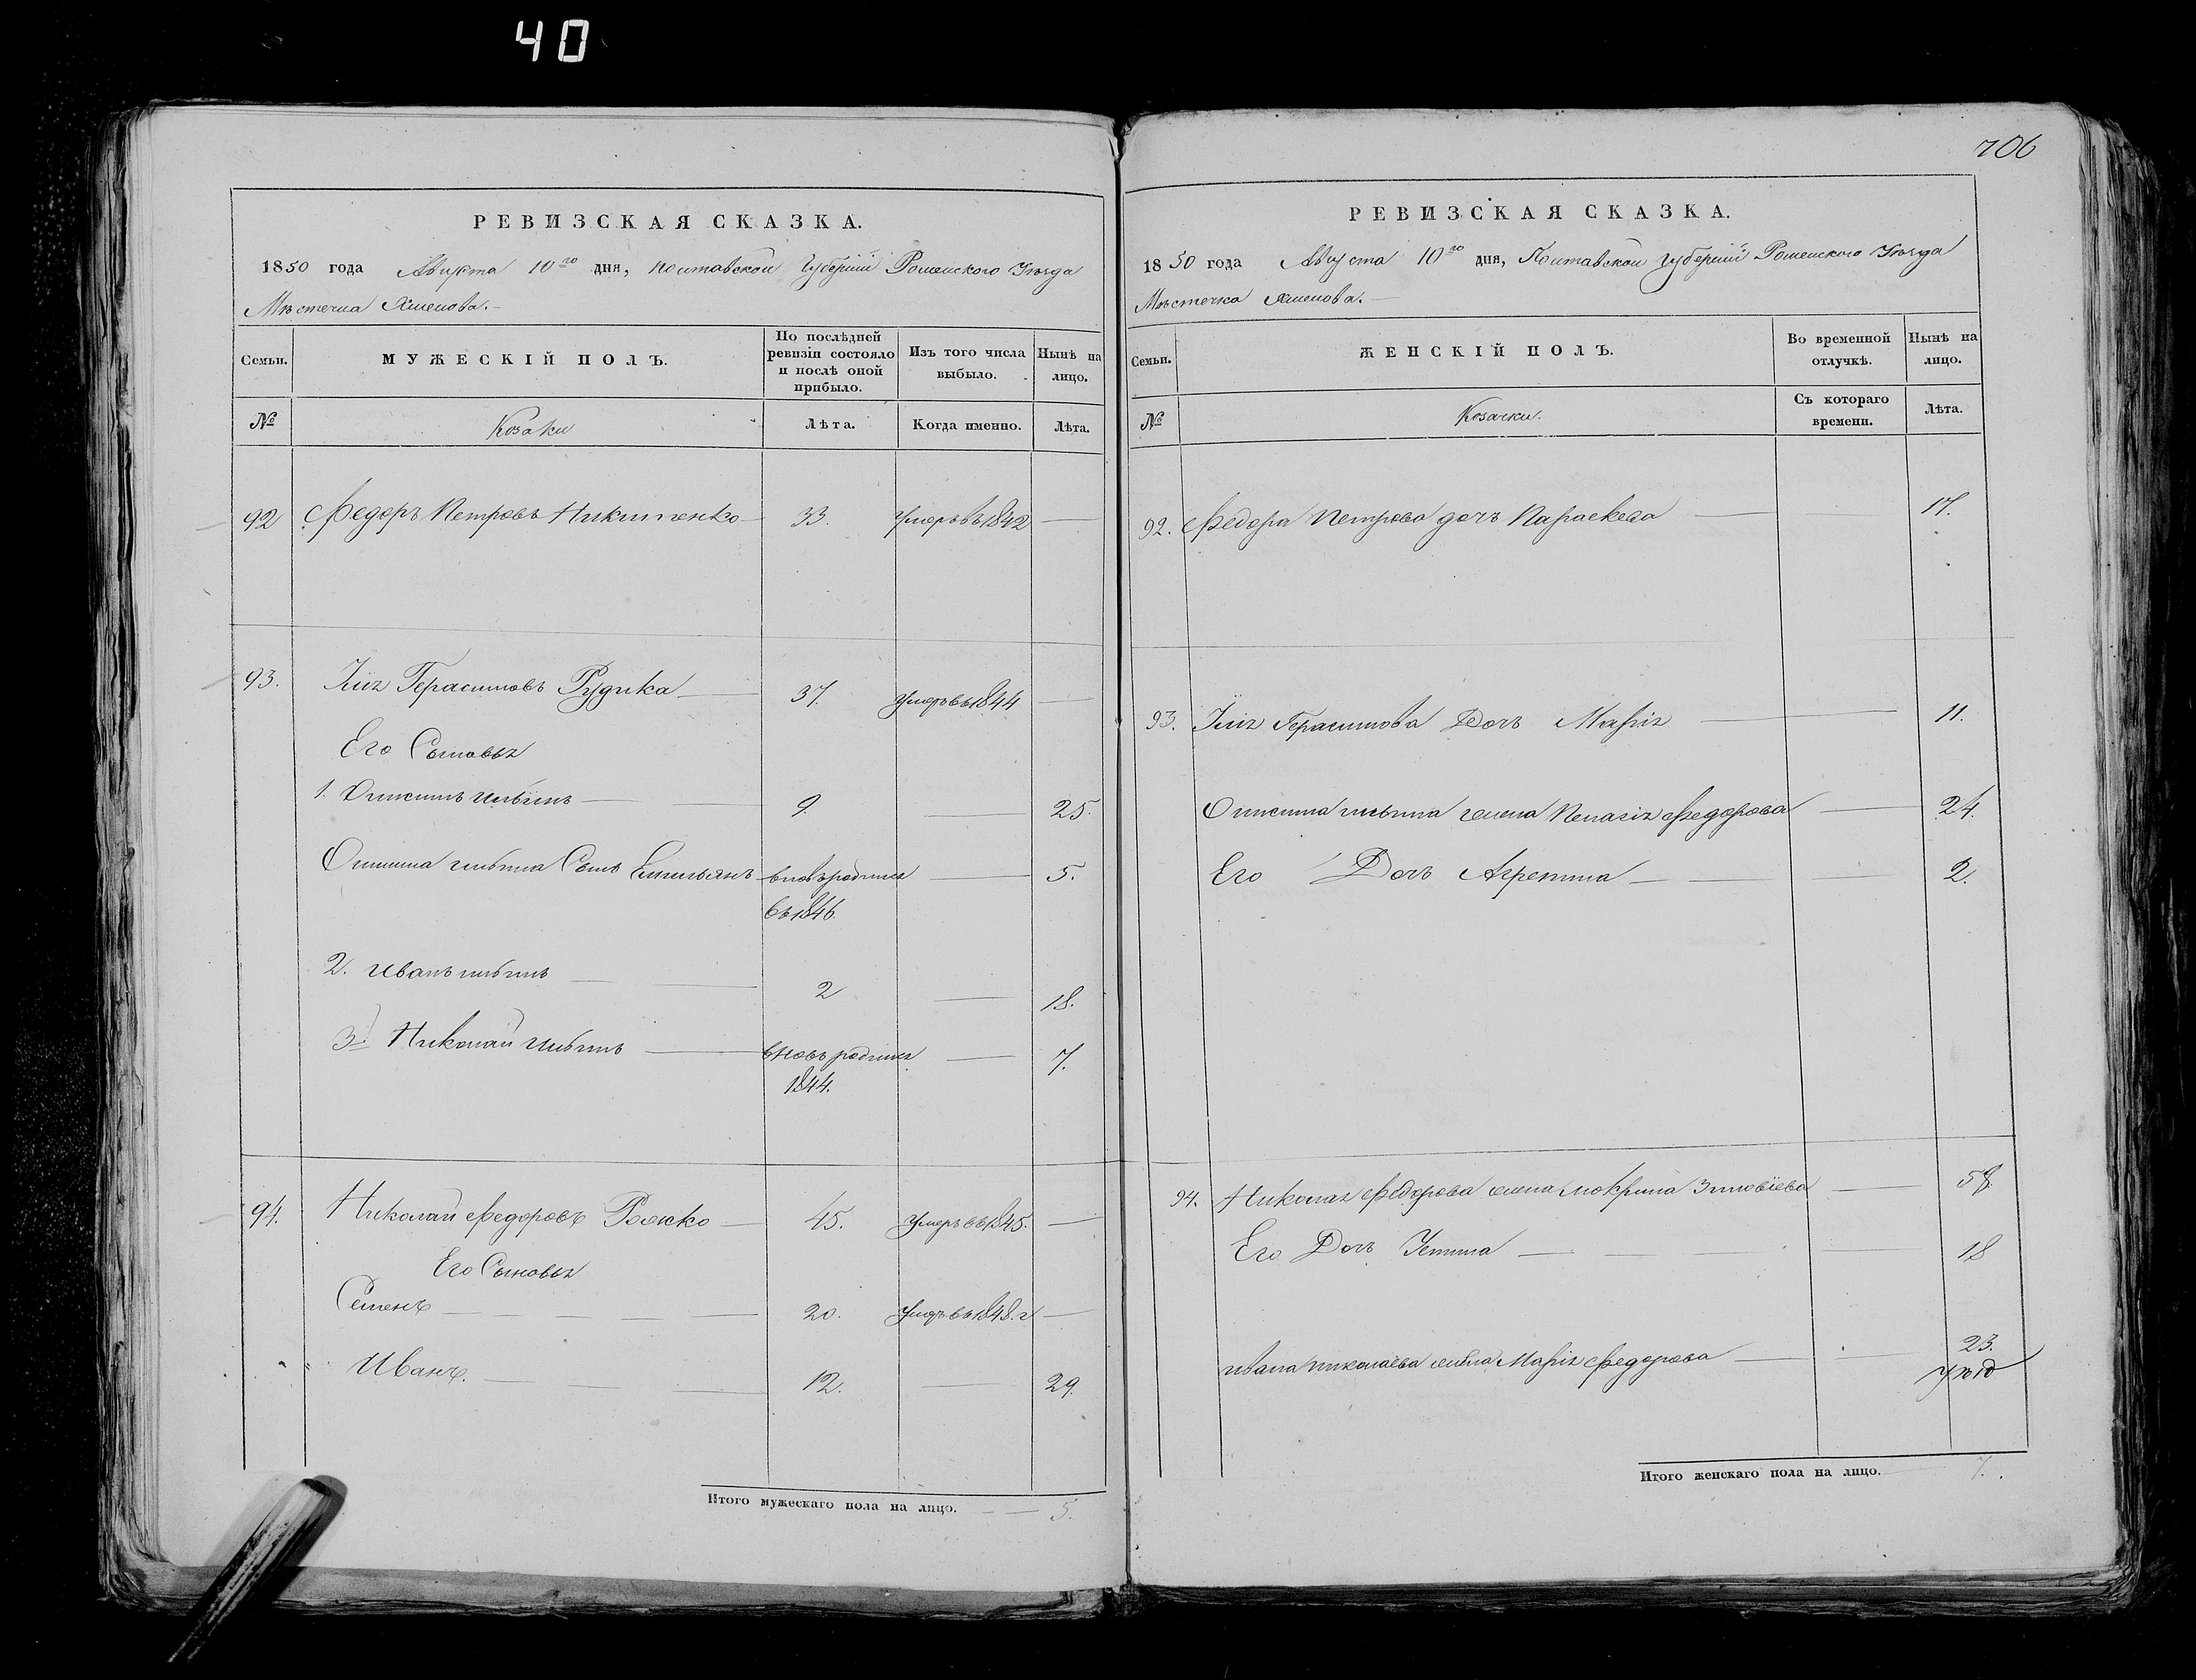 40
РЕВИЗСКАЯ СКАЗКА.
1850 года Августа 10го дня, Полтавской Губерніи Роменского Уѣзда
Мѣстечка Хмелова.
Семьи.
МУЖЕСКІЙ ПОЛЪ.
По послѣдней ревизіи состояло и послѣ оной прибыло.
Изъ того числа выбыло.
Нынѣ на лицо.
№
Козаки
Лѣта.
Когда именно.
Лѣта.
92 Федоръ Петровъ Никитенко 33. умеръ въ 1842
93. Илія Герасимовъ Рудика 37. умеръ въ 1844
Его Сыновья
1. Онисимъ Ильинъ 9. 25.
Онисима Ильина Сынъ Емельянъ вновь родился 5.
въ 1846.
2. Иванъ Ильинъ 2 18.
3. Николай Ильинъ вновь родился 7.
1844.
94. Николай Федоровъ Рожко 45. умеръ въ 1845.
Его Сыновья
Семенъ 20. умеръ въ 1848. г
Иванъ. 12. 29.
Итого мужескаго пола на лицо. 5.
706
РЕВИЗСКАЯ СКАЗКА.
1850 года Августа 10го дня, Полтавской Губерніи Роменского Уѣзда
Мѣстечка Хмелова.
Семьи.
ЖЕНСКІЙ ПОЛЪ.
Во временной отлучкѣ.
Нынѣ на лицо.
№
Козачки.
Съ котораго времени.
Лѣта.
92. Федора Петрова дочь Параскева 17.
93. Илія Герасимова Дочь Марія 11.
Онисима Ильина жена Пелагія Федорова 24.
Его Дочь Агрепина 2.
94. Николая Федорова жена Мокрина Зиновіева 58.
Его Дочь 18
Ивана Николаева жена Марія Федорова 23.
Итого женскаго пола на лицо. 7.